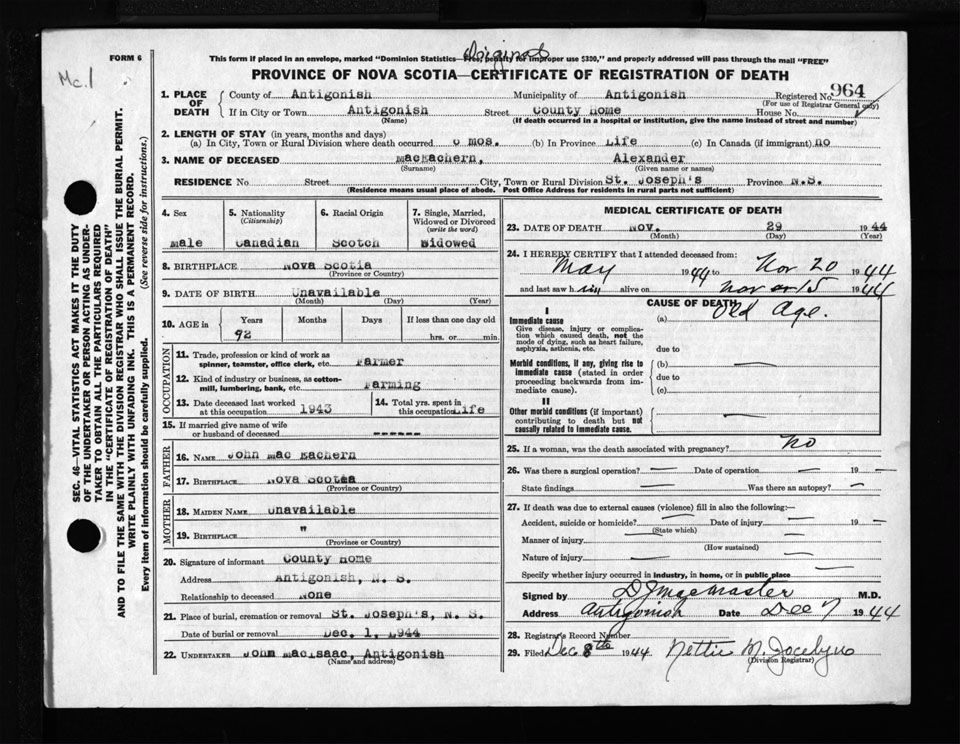 Original
FORM 6
This form if placed in an envelope, marked "Dominion Statistics—Free, penalty for improper use $300," and properly addressed will pass through the mail "FREE"
Mc. 1
PROVINCE OF NOVA SCOTIA—CERTIFICATE OF REGISTRATION OF DEATH
1. PLACE OF DEATH
County of Antigonish Municipality of Antigonish Registered No. 964
(For use of Registrar General only)
If in City or Town Antigonish Street County Home House No.
(Name) (If death occurred in a hospital or institution, give the name instead of street and number)
2. LENGTH OF STAY (in years, months and days)
(a) In City, Town or Rural Division where death occurred mos. (b) In Province Life (c) In Canada (if immigrant) no
3. NAME OF DECEASED MacEachern, Alexander
(Surname) (Given name or names)
RESIDENCE No Street City, Town or Rural Division St. Joseph's Province N.S.
(Residence means usual place of abode. Post Office Address for residents in rural parts not sufficient)
4. Sex
Male
5. Nationality
(Citizenship)
Canadian
6. Racial Origin
Scotch
7. Single, Married, Widowed or Divorced
(write the word)
Widowed
8. BIRTHPLACE Nova Scotia
(Province or Country)
9. DATE OF BIRTH Unavailable
(Month) (Day) (Year)
10. AGE in Years Months Days If less than one day old
92 hrs. or min.
OCCUPATION
11. Trade, profession or kind of work as
spinner, teamster, office clerk, etc. Farmer
12. Kind of industry or business, as cotton-
mill, lumbering, bank, etc. Farming
13. Date deceased last worked
at this occupation 1943
14. Total yrs. spent in
this occupation Life
15. If married give name of wife
or husband of deceased ------
FATHER
16. NAME John Mac Eachern
17. BIRTHPLACE Nova Scotia
(Province or Country)
MOTHER
18. MAIDEN NAME Unavailable
19. BIRTHPLACE "
(Province or Country)
20. Signature of informant County Home
Address Antigonish, N. S.
Relationship to deceased None
21. Place of burial, cremation or removal St. Joseph's, N. S.
Date of burial or removal Dec. 1, 1944
22. UNDERTAKER John MacIsaac, Antigonish
(Name and address)
MEDICAL CERTIFICATE OF DEATH
23. DATE OF DEATH Nov. 29 1944
(Month) (Day) (Year)
24. I HEREBY CERTIFY that I attended deceased from:
May 1944 to Nov 20 1944
and last saw him alive on Nov 15 1944
CAUSE OF DEATH
I
Immediate cause (a) Old Age.
Give disease, injury or complica-
tion which caused death, not the
mode of dying, such as heart failure,
asphyxia, asthenia, etc. due to
Morbid conditions, if any, giving rise to (b) —
immediate cause (stated in order due to
proceeding backwards from im-
mediate cause). (c)
II
Other morbid conditions (if important) —
contributing to death but not
causally related to immediate cause.
25. If a woman, was the death associated with pregnancy? No
26. Was there a surgical operation? — Date of operation — 19 —
State findings — Was there an autopsy? —
27. If death was due to external causes (violence) fill in also the following:—
Accident, suicide or homicide? — Date of injury — 19 —
(State which)
Manner of injury —
(How sustained)
Nature of injury —
Specify whether injury occurred in industry, in home, or in public place —
Signed by M.D.
Address Antigonish Date Dec 7 1944
28. Registrar's Record Number
29. Filed Dec 8th 1944 Nettie M. Jocelyn
(Division Registrar)
SEC. 46—VITAL STATISTICS ACT MAKES IT THE DUTY
OF THE UNDERTAKER OR PERSON ACTING AS UNDER-
TAKER TO OBTAIN ALL THE PARTICULARS REQUIRED
IN THE "CERTIFICATE OF REGISTRATION OF DEATH"
AND TO FILE THE SAME WITH THE DIVISION REGISTRAR WHO SHALL ISSUE THE BURIAL PERMIT.
WRITE PLAINLY WITH UNFADING INK. THIS IS A PERMANENT RECORD.
Every item of information should be carefully supplied. (See reverse side for instructions.)